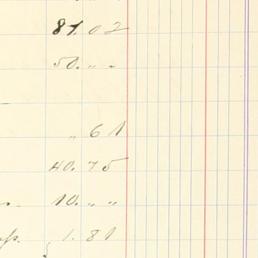 81.02
50. " "
" 61
40.75
10. " "
1.81